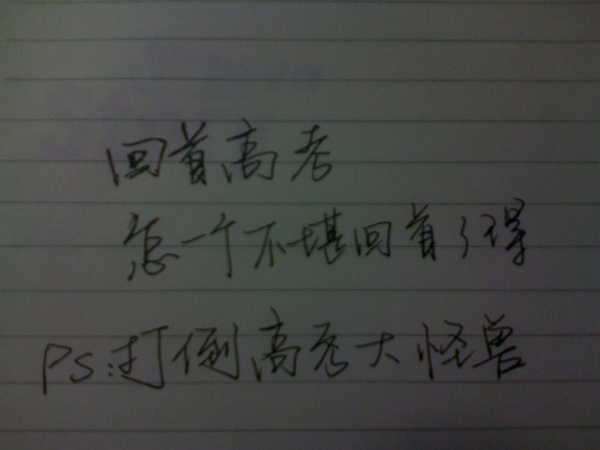 回首高考
怎一个不堪回首了得
PS:打倒高考大怪兽